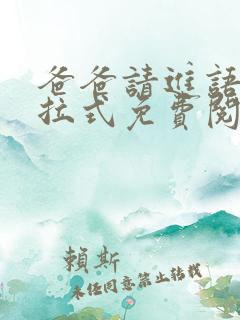 爸爸請進語
拉式免費閱
賴斯
未經同意禁止轉載